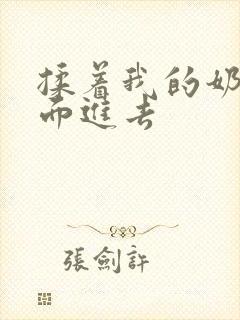 揉着我的奶
而進去
張劍許